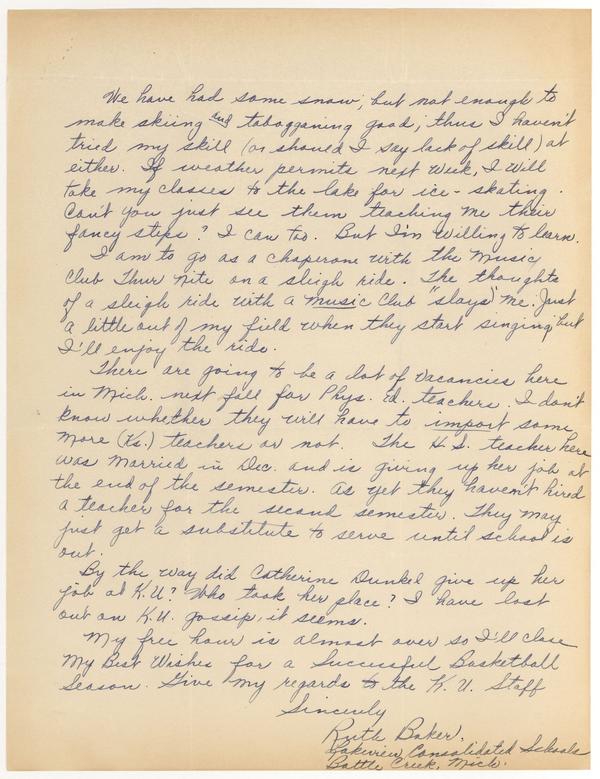 We have had some snow, but not enough to
make skiing and tobogganing good; thus I haven't
tried my skill (or should I say lack of skill) at
either. If weather permits next week, I will
take my classes to the lake for ice-skating.
Can't you just see them teaching me their
fancy steps? I can too. But I'm willing to learn.
I am to go as a chaperone with the Music
Club Thur nite on a sleigh ride. The thoughts
of a sleigh ride with a Music Club "slays" me. Just
a little out of my field when they start singing, but
I'll enjoy the ride.
There are going to be a lot of vacancies here
in Mich. next fall for Phys. Ed. teachers. I don't
know whether they will have to import some
more (Ks.) teachers or not. The H.S. teacher here
was married in Dec. and is giving up her job at
the end of the semester. As yet they haven't hired
a teacher for the second semester. They may
just get a substitute to serve until school is
out.
By the way did Catherine Dunkel give up her
job at K.U? Who took her place? I have lost
out on K.U. gossip, it seems.
My free hour is almost over so I'll close
My Best Wishes for a Successful Basketball
Season. Give my regards to the K.U. Staff
Sincerely
Ruth Baker.
Lakeview Consolidated Schools
Battle Creek, Mich.